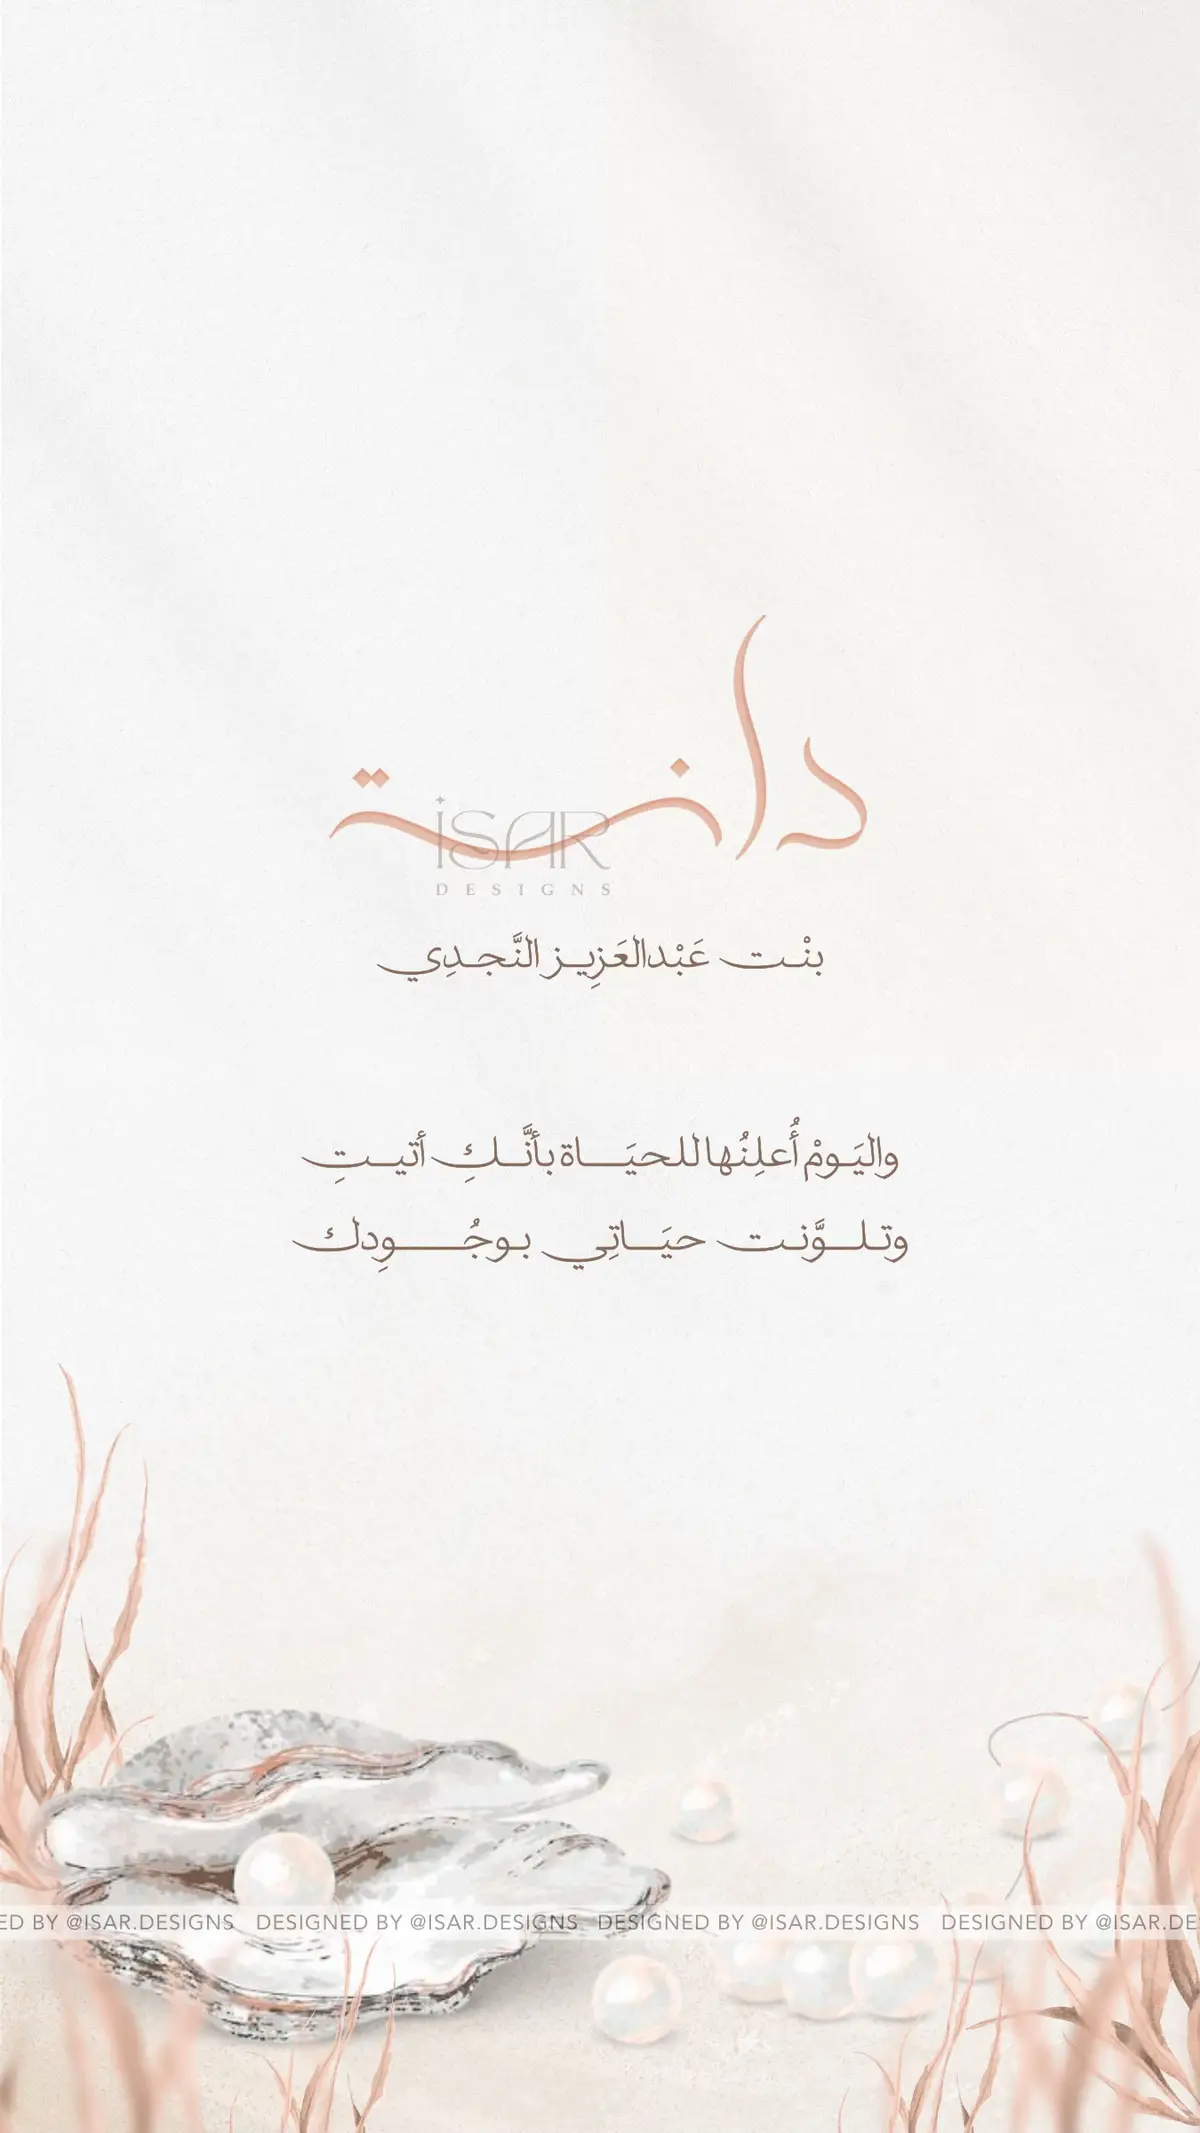 دانة
iSAR
DESIGNS
بنْت عَبْدالعَزِيز النَّجدِي
واليَومْ أُعلِنُها للحيَاة بأنَّكِ أتيتِ
وتلوَّنت حيَاتِي بوجُودِك
ED BY @ISAR.DESIGNS DESIGNED BY @ISAR.DESIGNS DESIGNED BY @ISAR.DESIGNS DESIGNED BY @ISAR.DE